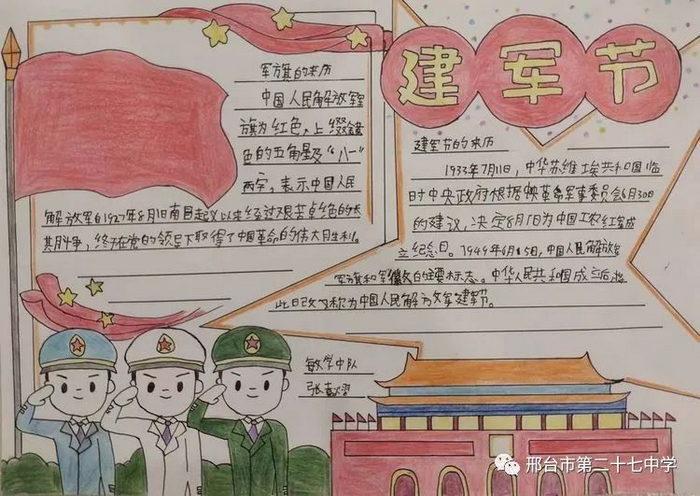 建军节
军旗的来历
中国人民解放军军
旗为红色，上缀金黄
色的五角星及“八一”
两字，表示中国人民
解放军自1927年8月1日南昌起义以来经过艰苦卓绝的长
期斗争，终于在党的领导下取得了中国革命的伟大胜利。
建军节的来历
1933年7月11日，中华苏维埃共和国临
时中央政府根据中央革命军事委员会6月30日
的建议，决定8月1日为中国工农红军成
立纪念日。1949年6月15日，中国人民解放军
军旗和军徽的主要标志。中华人民共和国成立后，将
此日改称为中国人民解放军建军节。
中队
邢台市第二十七中学